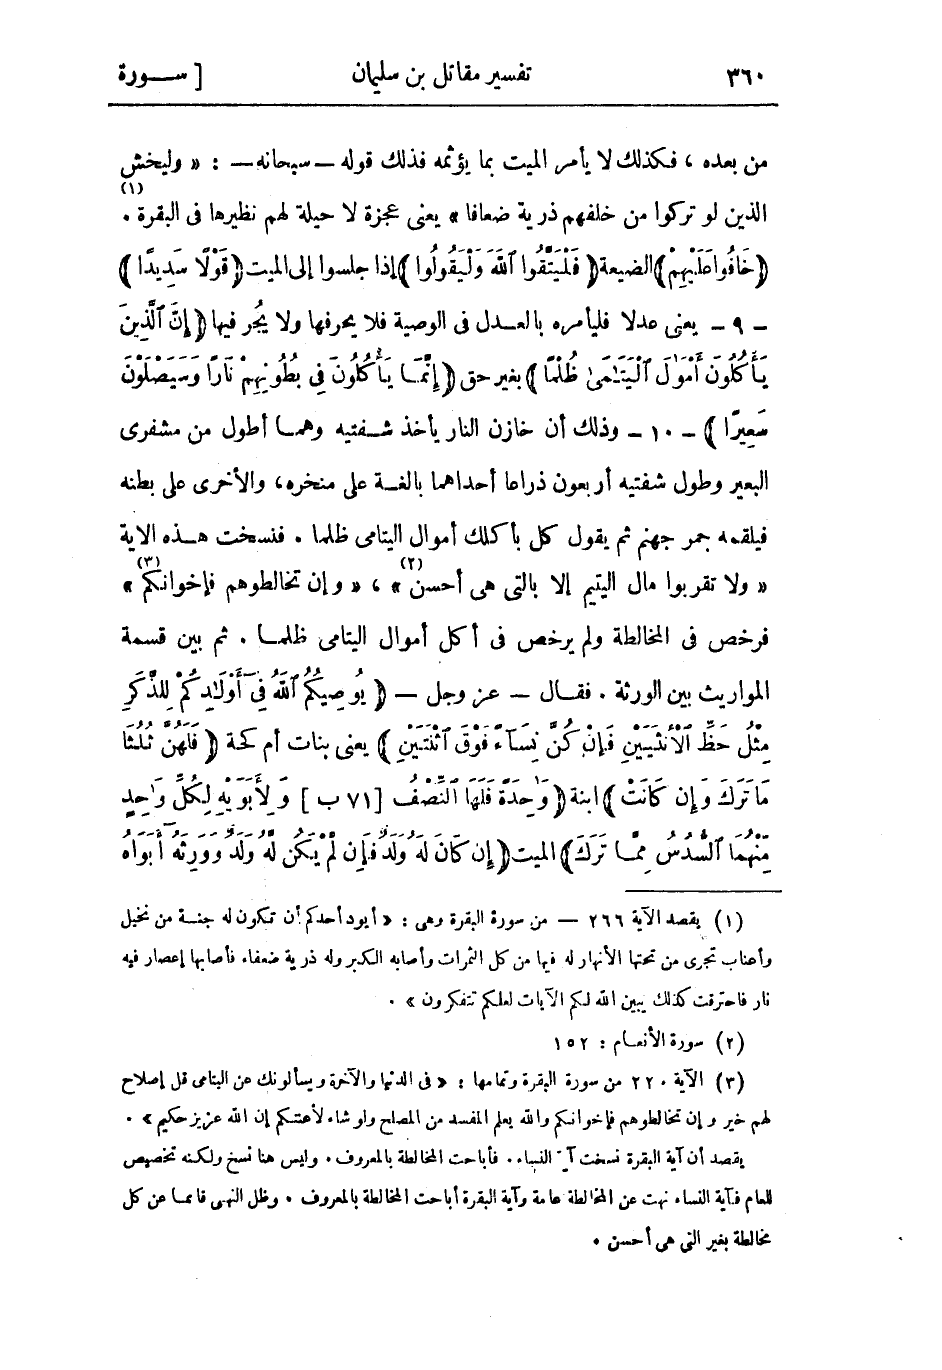 ٣٦٠ تفسير مقاتل بن سليمان [ ســورة
من بعده ، فكذلك لا يأمر الميت بما يؤثمه فذلك قوله — سبحانه — : « وليخش
الذين لو تركوا من خلفهم ذرية ضعافا » يعنى عجزة لا حيلة لهم نظيرها فى البقرة (١) .
﴿ خَافُوا عَلَيْهِمْ ﴾ الضيعة ﴿ فَلْيَتَّقُوا ٱللَّهَ وَلْيَقُولُوا ﴾ إذا جلسوا إلى الميت ﴿ قَوْلًا سَدِيدًا ﴾
— ٩ — يعنى عدلا فليأمره بالعــدل فى الوصية فلا يحرفها ولا يُجر فيها ﴿ إِنَّ ٱلَّذِينَ
يَأْكُلُونَ أَمْوَٰلَ ٱلْيَتَـٰمَىٰ ظُلْمًا ﴾ بغير حق ﴿ إِنَّمَـا يَأْكُلُونَ فِى بُطُونِهِمْ نَارًا وَسَيَصْلَوْنَ
سَعِيرًا ﴾ — ١٠ — وذلك أن خازن النار يأخذ شــفتيه وهمــا أطول من مشفرى
البعير وطول شفتيه أربعون ذراعا أحداهما بالغــة على منخره، والأخرى على بطنه
فيلقمه جمر جهنم ثم يقول كل بأكلك أموال اليتامى ظلما . فنسخت هــذه الاية
« ولا تقربوا مال اليتيم إلا بالتى هى أحسن (٢) » ، « وإن تخالطوهم فإخوانكم (٣) »
فرخص فى المخالطة ولم يرخص فى أكل أموال اليتامى ظلمــا . ثم بين قسمة
المواريث بين الورثة . فقــال — عز وجل — ﴿ يُوصِيكُمُ ٱللَّهُ فِىٓ أَوْلَـٰدِكُمْ لِلذَّكَرِ
مِثْلُ حَظِّ ٱلْأُنثَيَيْنِ فَإِن كُنَّ نِسَآءً فَوْقَ ٱثْنَتَيْنِ ﴾ يعنى بنات أم كحة ﴿ فَلَهُنَّ ثُلُثَا
مَا تَرَكَ وَإِن كَانَتْ ﴾ ابنة ﴿ وَٰحِدَةً فَلَهَا ٱلنِّصْفُ [ ٧١ ب ] وَلِأَبَوَيْهِ لِكُلِّ وَٰحِدٍ
مِّنْهُمَا ٱلسُّدُسُ مِمَّـا تَرَكَ ﴾ الميت ﴿ إِن كَانَ لَهُ وَلَدٌ فَإِن لَّمْ يَكُن لَّهُ وَلَدٌ وَوَرِثَهُٓ أَبَوَاهُ
(١) يقصد الآية ٢٦٦ — من سورة البقرة وهى : « أيود أحدكم أن تكون له جنــة من نخيل
وأعناب تجرى من تحتها الأنهار له فيها من كل الثمرات وأصابه الكبر وله ذرية ضعفاء فأصابها إعصار فيه
نار فاحترقت كذلك يبين الله لكم الآيات لعلكم تتفكرون » .
(٢) سورة الأنعــام : ١٥٢
(٣) الآية ٢٢٠ من سورة البقرة وتمامها : « فى الدنيا والآخرة ويسألونك عن اليتامى قل إصلاح
لهم خير وإن تخالطوهم فإخوانكم والله يعلم المفسد من المصلح ولو شاء لأعنتكم إن الله عزيز حكيم » .
يقصد أن آية البقرة نسخت آية النساء . فأباحت المخالطة بالمعروف . وليس هنا نسخ ولكنه تخصيص
للعام فآية النساء نهت عن المخالطة عامة وآية البقرة أباحت المخالطة بالمعروف . وظل النهى قائمــا عن كل
مخالطة بغير التى هى أحسن .